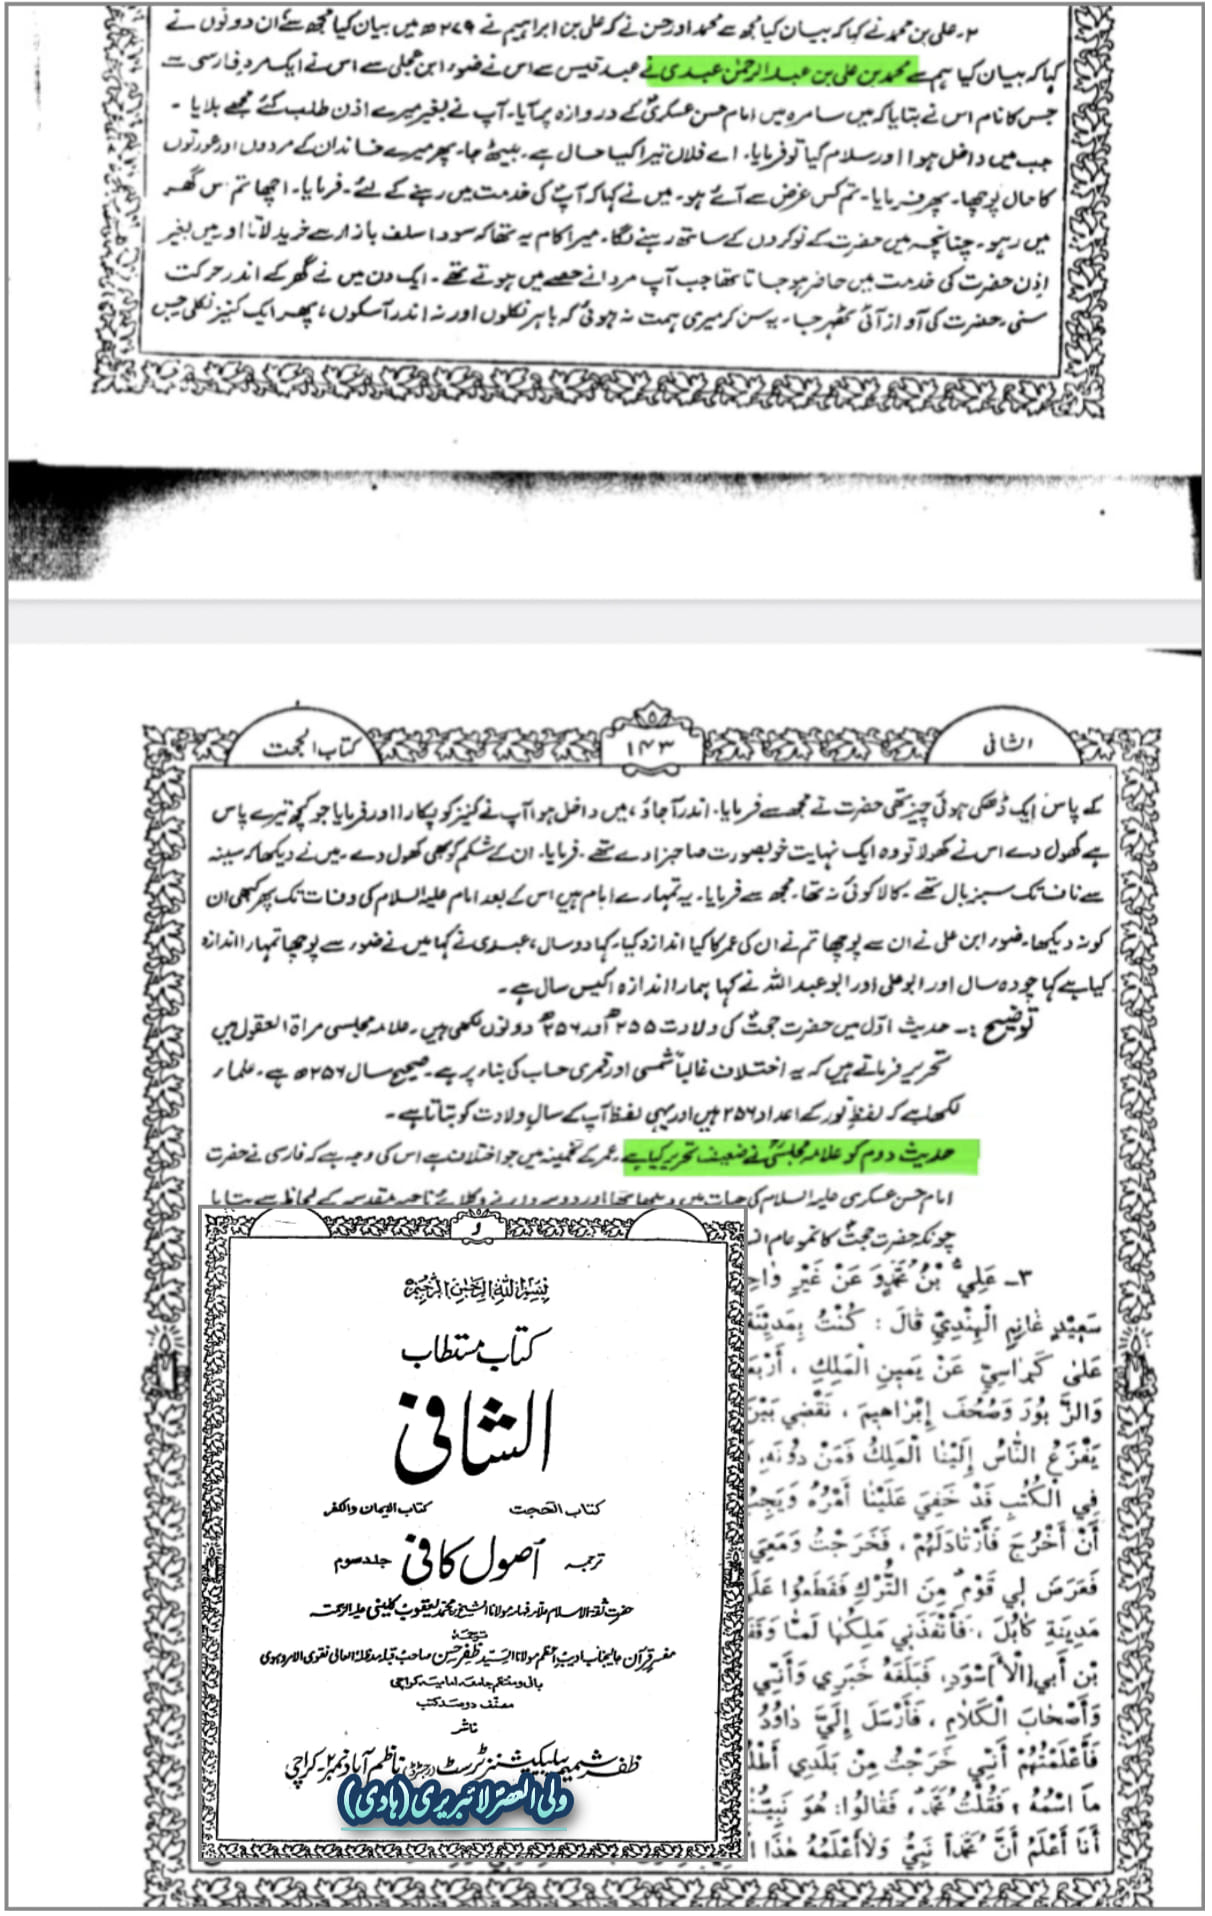 ۲۔ علی بن محمد نے کہا کہ بیان کیا مجھ سے محمد اور حسن نے کہ علی بن ابراہیم نے ۲۷۹ھ میں بیان کیا مجھ سے ان دونوں نے
کہا کہ بیان کیا ہم سے محمد بن علی بن عبدالرحمٰن عبدی نے عبد قیس سے اس نے ضوء ابن عجلی سے اس نے ایک مرد فارسی سے
جس کا نام اس نے بتایا کہ میں سامرہ میں امام حسن عسکریؑ کے دروازہ پر آیا۔ آپ نے بغیر میرے اذن طلب کئے مجھے بلایا۔
جب میں داخل ہوا اور سلام کیا تو فرمایا۔ اے فلاں تیرا کیا حال ہے۔ بیٹھ جا۔ پھر میرے خاندان کے مردوں اور عورتوں
کا حال پوچھا۔ پھر فرمایا۔ تم کس غرض سے آئے ہو۔ میں نے کہا کہ آپؑ کی خدمت میں رہنے کے لئے۔ فرمایا۔ اچھا تم اس گھر
میں رہو۔ چنانچہ میں حضرت کے نوکروں کے ساتھ رہنے لگا۔ میرا کام یہ تھا کہ سودا سلف بازار سے خرید لاتا اور میں بغیر
اذن حضرت کی خدمت میں حاضر ہو جاتا تھا جب آپ مردانے حصے میں ہوتے تھے۔ ایک دن میں نے گھر کے اندر حرکت
سنی۔ حضرت کی آواز آئی ٹھہر جا۔ یہ سن کر میری ہمت نہ ہوئی کہ باہر نکلوں اور نہ اندر آسکوں، پھر ایک کنیز نکلی جس
الشافی
۱۴۳
کتاب الحجت
کے پاس ایک ڈھکی ہوئی چیز تھی حضرت نے مجھ سے فرمایا۔ اندر آجاؤ، میں داخل ہوا آپ نے کنیز کو پکارا اور فرمایا جو کچھ تیرے پاس
ہے کھول دے اس نے کھولا تو وہ ایک نہایت خوبصورت صاحبزادے تھے۔ فرمایا۔ ان کے شکم کو بھی کھول دے۔ میں نے دیکھا کہ سینہ
سے ناف تک سبز بال تھے۔ کالا کوئی نہ تھا۔ مجھ سے فرمایا۔ یہ تمہارے امام ہیں اس کے بعد امام علیہ السلام کی وفات تک پھر کبھی ان
کو نہ دیکھا۔ ضور ابن علی نے ان سے پوچھا تم نے ان کی عمر کا کیا اندازہ کیا۔ کہا دو سال، عبدی نے کہا میں نے ضور سے پوچھا تمہارا اندازہ
کیا ہے کہا چودہ سال اور ابو علی اور ابو عبداللہ نے کہا ہمارا اندازہ اکیس سال ہے۔
توضیح :۔ حدیث اوّل میں حضرت حجتؑ کی ولادت ۲۵۵ھ اور ۲۵۶ھ دونوں لکھی ہیں۔ علامہ مجلسی مراۃ العقول میں
تحریر فرماتے ہیں کہ یہ اختلاف غالباً شمسی اور قمری حساب کی بناء پر ہے۔ صحیح سال ۲۵۶ھ ہے۔ علماء
لکھا ہے کہ لفظ نور کے اعداد ۲۵۶ ہیں اور یہی لفظ آپ کے سال ولادت کو بتاتا ہے۔
حدیث دوم کو علامہ مجلسیؒ نے ضعیف تحریر کیا ہے۔ عمر کے تخمینہ میں جو اختلاف ہے اس کی وجہ ہے کہ فارسی نے حضرت
امام حسن عسکری علیہ السلام کی حیات میں دیکھا تھا اور دوسروں نے
چونکہ حضرت حجتؑ کا نمو عام
۳ـ عَلِيُّ بْنُ مُحَمَّدٍ وَ عَنْ غَيْرِ
سَعِيدٍ غَانِمٍ الْهِنْدِيِّ قَالَ : كُنْتُ بِمَدِينَة
عَلَى كَرَاسِيَّ عَنْ يَمِينِ الْمَلِكِ ، أَرْبَعُ
وَالزَّبُورَ وَصُحُفَ إِبْرَاهِيمَ ، نَقْضِي بَيْنَ
يَفْزَعُ النَّاسُ إِلَيْنَا الْمَلِكُ فَمَنْ دُونَهُ،
فِي الْكُتُبِ قَدْ خَفِيَ عَلَيْنَا أَمْرُهُ وَيَجِبُ
أَنْ أَخْرُجَ فَأَرْتَادَلَهُمْ ، فَخَرَجْتُ وَمَعِيَ
فَعَرَضَ لِي قَوْمٌ مِنَ التُّرْكِ فَقَطَعُوا عَلَيَّ
مَدِينَةِ كَابُلَ ، فَأَنْفَذَنِي مَلِكُهَا لَمَّا وَقَفَ
بْنِ أَبِي[الْأَ]سْوَدِ، فَبَلَغَهُ خَبَرِي وَأَنِّي
وَأَصْحَابَ الْكَلَامِ ، فَأَرْسَلَ إِلَيَّ دَاوُدُ
فَأَعْلَمْتُهُمْ أَنِّي خَرَجْتُ مِنْ بَلَدِي أَطْلُ
مَا اسْمُهُ ؟ فَقُلْتُ مُحَمَّدٌ، فَقَالُوا: هُوَ نَبِيُّنَا
أَنَا أَعْلَمُ أَنَّ مُحَمَّداً نَبِيٌّ وَلَا أَعْلَمُهُ هَذَا
و
بِسْمِ اللهِ الرَّحْمٰنِ الرَّحِيْمِ
کتاب مستطاب
الشافی
کتاب الحجت
کتاب الایمان والکفر
ترجمہ اُصول کافی جلد سوم
حضرت ثقۃ الاسلام علامہ فہامہ مولانا الشیخ محمد یعقوب کلینی علیہ الرحمہ
ترجمہ
مفسر قرآن عالیجناب ادیب اعظم مولانا السید ظفر حسن صاحب قبلہ مدظلہ العالی نقوی الامروہوی
بانی و منتظم جامعہ امامیہ کراچی
مصنف دو صد کتب
ناشر
ظفر شمیم پبلیکیشنز ٹرسٹ (رجسٹرڈ) ناظم آباد نمبر ۲ کراچی
ولی العصر لائبریری (ہادی)